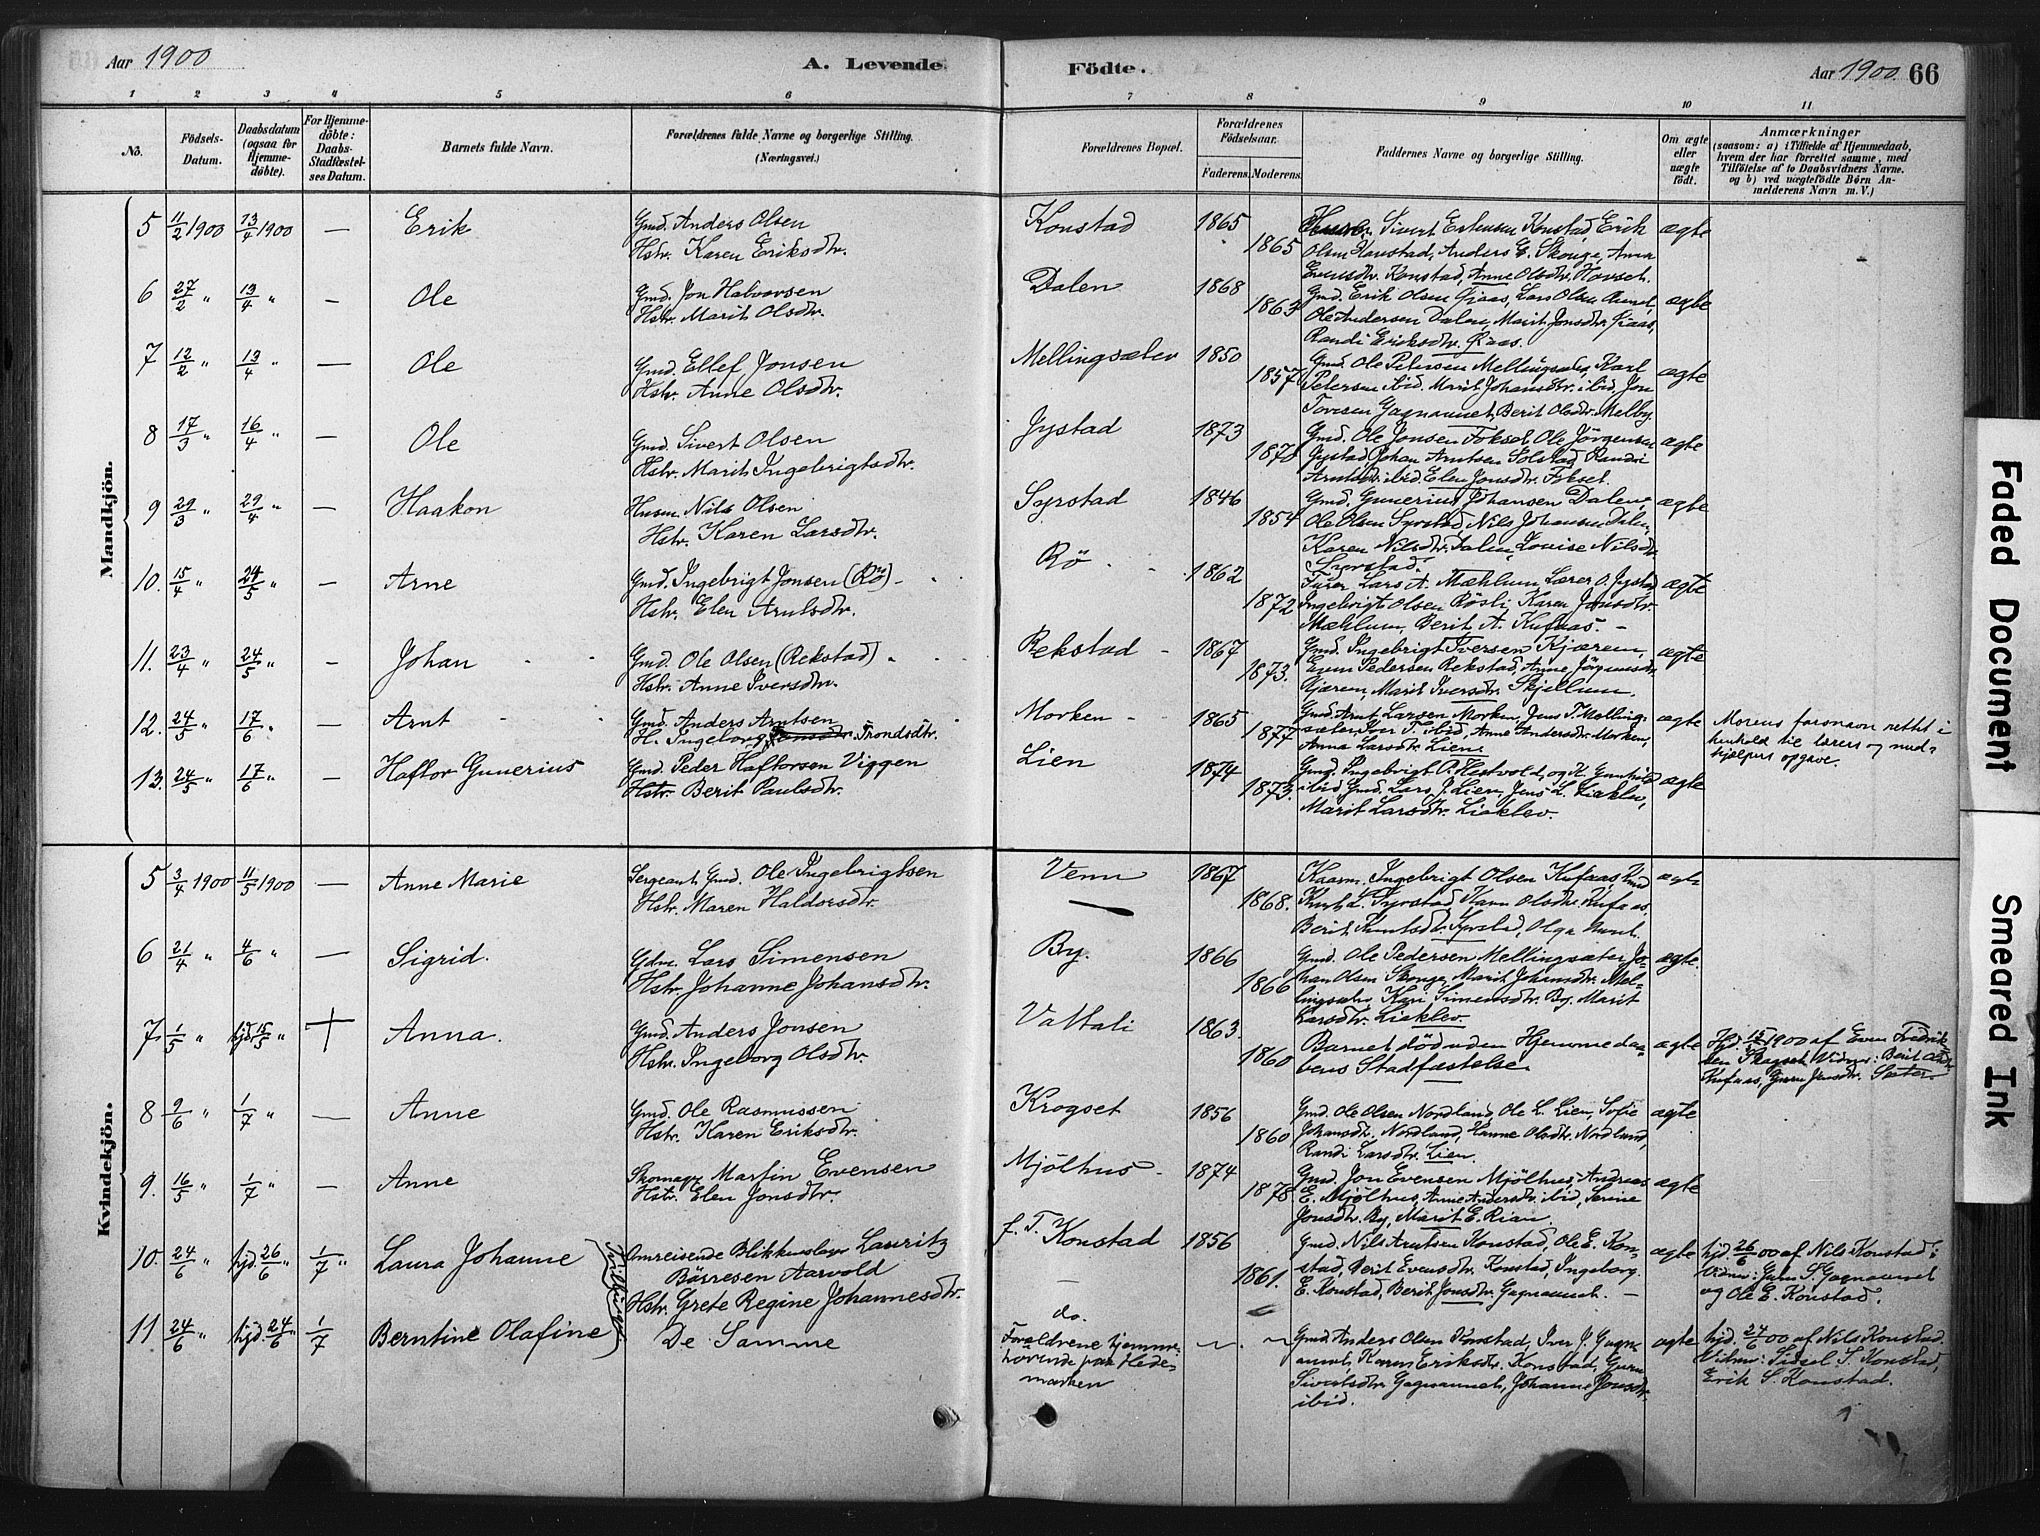 Aar 1900
A. Levende
Födte.
Aar 1900. 66
1 2 3 4 5 6 7 8 9 10 11
No.
Födsels-
Datum.
Daabsdatum
(ogsaa for
Hjemme-
döbte).
For Hjemme-
döbte:
Daabs-
Stadfæstel-
ses Datum.
Barnets fulde Navn.
Forældrenes fulde Navne og borgerlige Stilling.
(Næringsvei.)
Forældrenes Bopæl.
Forældrenes
Födselsaar.
Faderens. Moderens.
Faddernes Navne og borgerlige Stilling.
Om ægte
eller
uægte
födt.
Anmærkninger
(saasom: a) i Tilfælde af Hjemmedaab,
hvem der har forrettet samme, med
Tilföielse af to Daabsvidners Navne.
og b) ved uægtefödte Börn An-
melderens Navn m. V.)
Mandkjön.
5 11/2 1900 13/4 1900 — Erik
Gmd. Anders Olsen
Hstr. Karen Eriksdtr.
Konstad 1865
1865
Sivert Estensen Konstad, Erik
Olsen Konstad, Anders E. Skouge, Anna
Evensdtr. Konstad, Anne Olsdtr. Hovset.
ægte
6 27/2 " 13/4 " — Ole
Gmd. Jon Halvorsen
Hstr. Marit Olsdtr.
Dalen 1868
1863
Gmd. Erik Olsen Øiaas, Lars Olsen
Ole Andersen Dalen, Marit Jonsdtr. Øiaas,
Randi Eriksdtr. Øiaas.
ægte
7 12/2 " 13/4 " — Ole
Gmd. Ellef Jonsen
Hstr. Anne Olsdtr.
Mellingsæter 1850
1857
Gmd. Ole Petersen Mellingsæter, Karl
Petersen ibid. Marit Johansdtr. ibid, Jon
Toresen Gagnaunet, Berit Olsdtr. Melby.
ægte
8 17/3 " 16/4 " — Ole
Gmd. Sivert Olsen
Hstr. Marit Ingebrigtsdtr.
Jystad 1873
1870
Gmd. Ole Jonsen Foksel, Ole Jörgensen
Gystad, Johan Arntsen Solstad, Randi
Arntsdtr. ibid, Elen Jonsdtr. Foksel.
ægte
9 29/3 " 29/4 " — Haakon
Husm. Nils Olsen
Hstr. Karen Larsdtr.
Syrstad 1846
1854
Gmd. Gunerius Johansen Dalen,
Ole Olsen Syrstad, Nils Johansen Dalen,
Karen Nilsdtr. Dalen, Louise Nilsdtr.
Syrstad.
ægte
10. 15/4 " 24/5 " — Arne
Gmd. Ingebrigt Jonsen (Rö)
Hstr. Elen Arntsdtr.
Rö 1862
1872
Furer Lars A. Mæhlum, Lærer O. Jystad
Ingebrigt Olsen Rösli, Karen Jonsdtr.
Mæhlum, Berit A. Kufaas.
ægte
11. 23/4 " 24/5 " — Johan
Gmd. Ole Olsen (Rekstad)
Hstr. Anne Iversdtr.
Rekstad 1867
1873.
Gmd. Ingebrigt Iversen Kjærem,
Even Pedersen Rekstad, Anne Jörgensdtr.
Kjærem, Marit Iversdtr. Skjellum.
ægte
12. 24/5 " 17/6 " — Arnt
Gmd. Anders Arntsen
H. Ingeborg Trondsdtr.
Morken 1865
1877
Gmd. Arnt Larsen Morken, Jens T. Melling-
sæter, Iver T. ibid, Anne Andersdtr. Morken,
Anna Larsdtr. Lien.
ægte
Morens farsnavn rettet i
henhold til lærers og med-
hjælpers opgave.
13. 24/5 " 17/6 " Haftor Gunerius
Gmd. Peder Haftorsen Viggen
Hstr. Berit Paulsdtr.
Lien 1874
1873.
Gmd. Ingebrigt O. Hestvold, og H. Gunhild
ibid, Gmd. Lars J. Lien, Jens L. Lieklev,
Marit Larsdtr. Lieklev.
ægte
Kvindekjön.
5 3/4 1900 11/5 1900 — Anne Marie
Sergeant, Gmd. Ole Ingebrigtsen
Hstr. Maren Haldorsdtr.
Venn 1867
1868.
Kaarm. Ingebrigt Olsen Kufaas,
L. Syrstad, Olsdtr. Kufaas,
Berit Syrstad, Olga
ægte
6 21/4 " 4/6 " — Sigrid.
Gdm. Lars Simensen
Hstr. Johanne Johansdtr.
By. 1866
1866
Gmd. Ole Pedersen Mellingsæter, Jo-
han Olsen Skouge, Marit Johansdtr. Mel-
lingsæter, Kari Simensdtr. By, Marit
Larsdtr. Lieklev.
ægte.
7 1/5 " hjd. 15/5 " † Anna.
Gmd. Anders Jonsen
Hstr. Ingeborg Olsdtr.
Vattali 1863.
1860
Barnet död uden Hjemmedaa-
bens Stadfæstelse.
ægte
Hjd. 15/5 1900 af Even Fredrik-
sen Skogset. Vidner: Berit
Kufaas, Guru Jonsdtr. Sæter.
8 9/6 " 1/7 " — Anne
Gmd. Ole Rasmussen
Hstr. Karen Eriksdtr.
Krogset 1856
1860
Gmd. Ole Olsen Nordland, Ole L. Lien, Sofie
Johansdtr. Nordland, Hanne Olsdtr. Nordland,
Randi Larsdtr. Lien.
ægte
9. 16/5 " 1/7 " — Anne
Skomager Martin Evensen
Hstr. Elen Jonsdtr.
Mjölhus 1874
1878
Gmd. Jon Evensen Mjölhus, Andreas
E. Mjölhus, Anne Andersdtr. ibid, Serine
Jonsdtr. By, Marit E. Rian.
ægte
10. 24/6 " hjd. 26/6 " 1/7 Laura Johanne
Tvillinger
Omreisende Blikkenslager Lauritz
Börresen Aarvold
Hstr. Grete Regine Johannesdtr.
f. T. Konstad 1856
1861.
Gmd. Nils Arntsen Konstad, Ole E. Kon-
stad, Berit Evensdtr. Konstad, Ingeborg
E. Konstad, Berit Jonsdtr. Gagnaunet.
ægte
hjd. 26/6 00 af Nils Konstad;
Vidner: Guru S. Gagnaunet
og Ole E. Konstad.
11 24/6 " hjd. 24/6 " 1/7 Berntine Olafine
De Samme
do.
Forældrene hjemme-
hörende paa Hede-
marken
Gmd. Anders Olsen Konstad, Iver J. Gagn-
aunet, Karen Eriksdtr. Konstad, Guru
Sivertsdtr. Gagnaunet, Johanne Jonsdtr.
ibid.
ægte
hjd. 24/6 00 af Nils Konstad.
Vidner: Sidsel S. Konstad,
Erik S. Konstad.
Faded Document
Smeared Ink